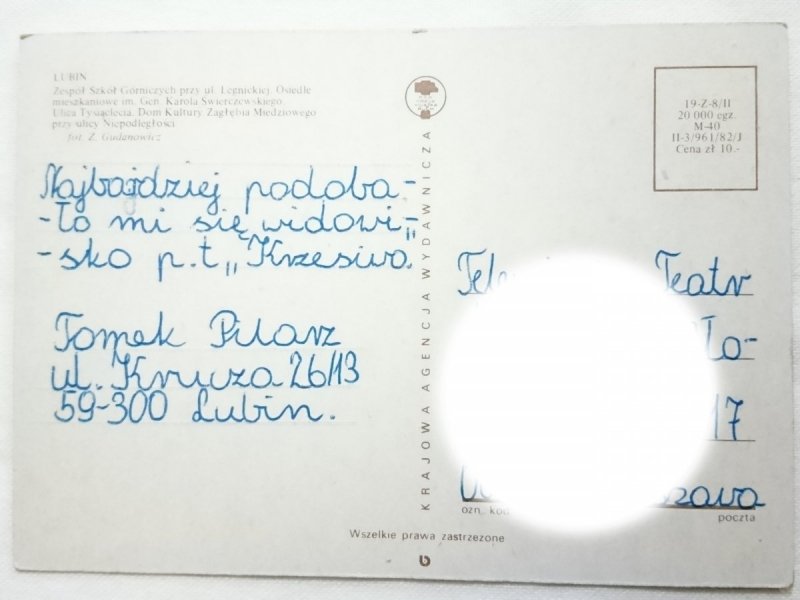 LUBIN
Zespół Szkół Górniczych przy ul. Legnickiej. Osiedle
mieszkaniowe im. Gen. Karola Świerczewskiego.
Ulica Tysiąclecia. Dom Kultury Zagłębia Miedziowego
przy ulicy Niepodległości
fot. Z. Gudanowicz
Najbardziej podoba-
-ło mi się widowi-
-sko p.t „Krzesiwo."
Tomek Pilarz
ul. Krucza 26/13
59-300 Lubin.
KRAJOWA AGENCJA WYDAWNICZA
19-Z-8/II
20 000 egz.
M-40
II-3/961/82/J
Cena zł 10.-
Teatr
17
ozn. kod
poczta
Wszelkie prawa zastrzeżone